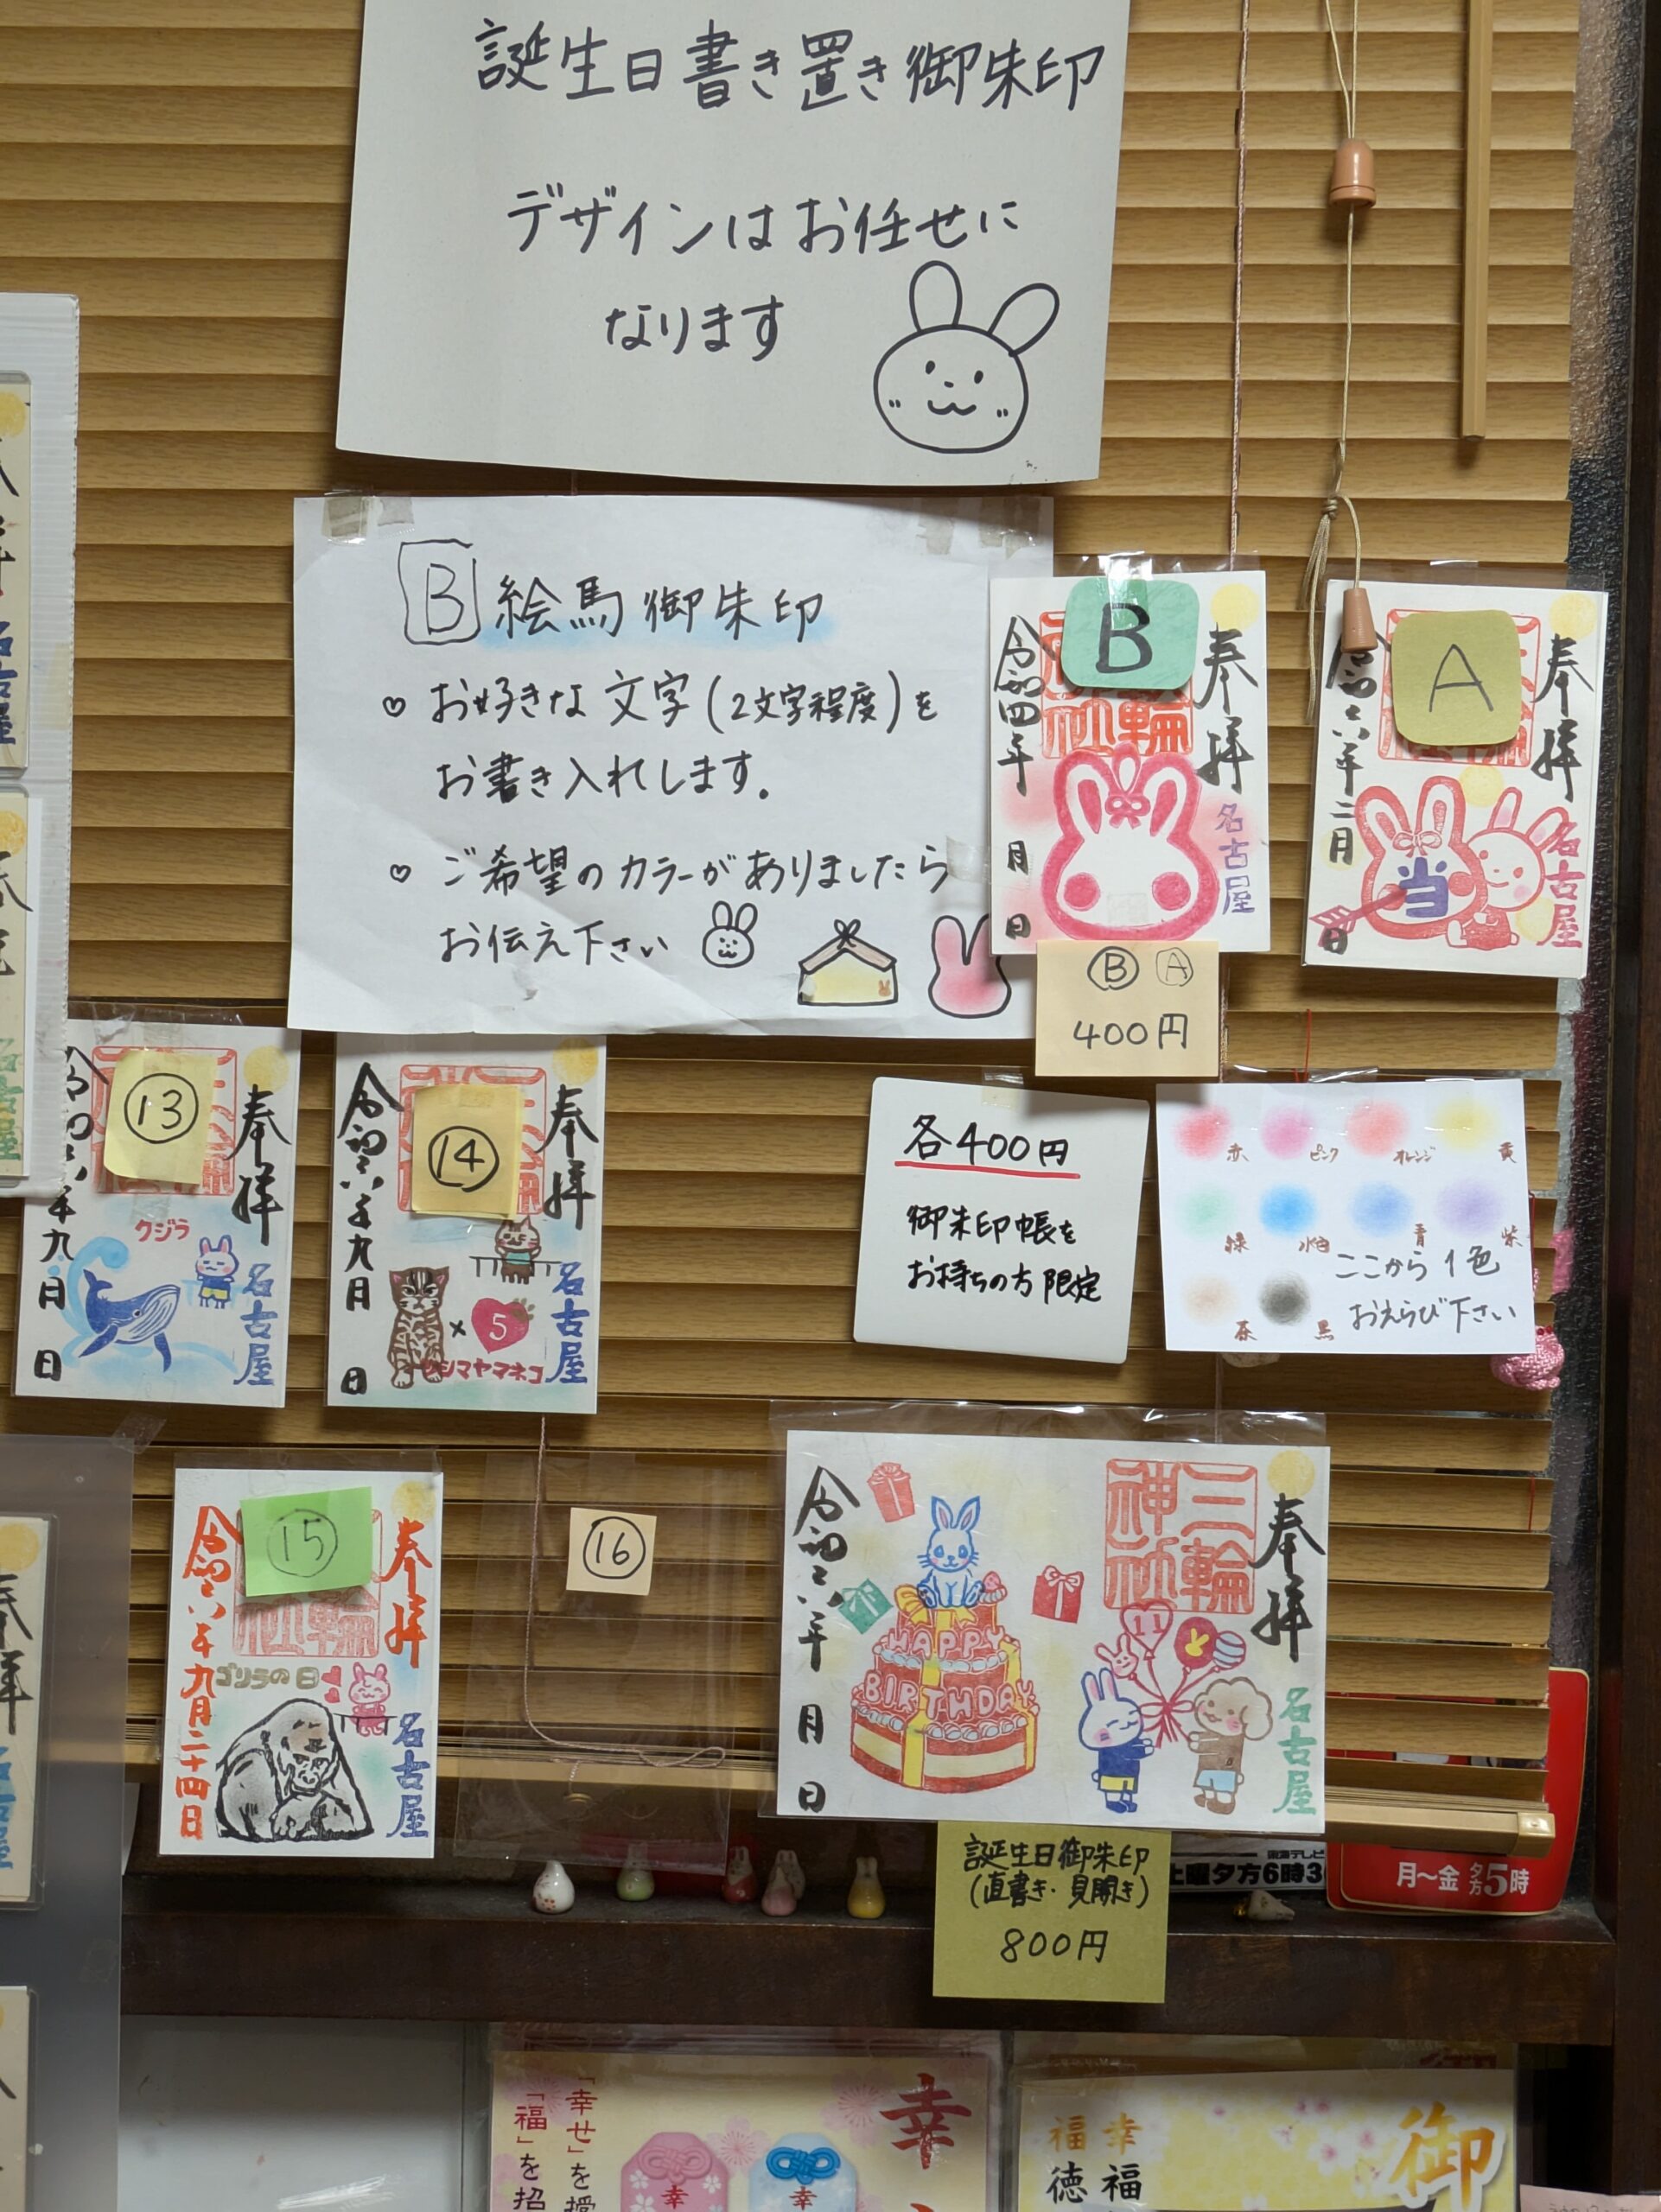 誕生日書き置き御朱印
デザインはお任せに
なります
B 絵馬御朱印
♡ お好きな文字(2文字程度)を
お書き入れします。
♡ ご希望のカラーがありましたら
お伝え下さい
B
奉拝
名古屋
令和四年 月 日
A
奉拝
名古屋
令和六年二月 日
当
Ⓑ A
400円
⑬
奉拝
名古屋
クジラ
令和六年九月 日
⑭
奉拝
名古屋
×5
シマヤマネコ
令和六年九月 日
各400円
御朱印帳を
お持ちの方限定
赤 ピンク オレンジ 黄
緑 水色 青 紫
茶 黒
ここから1色
おえらび下さい
⑮
奉拝
名古屋
ゴリラの日
令和六年九月二十四日
⑯
奉拝
三輪神社
名古屋
HAPPY
BIRTHDAY
11
令和六年 月 日
誕生日御朱印
(直書き・見開き)
800円
土曜夕方6時3
月〜金 夕方5時
幸
「幸せ」を授
「福」を招
幸
幸
御
幸福
福徳
奉拝